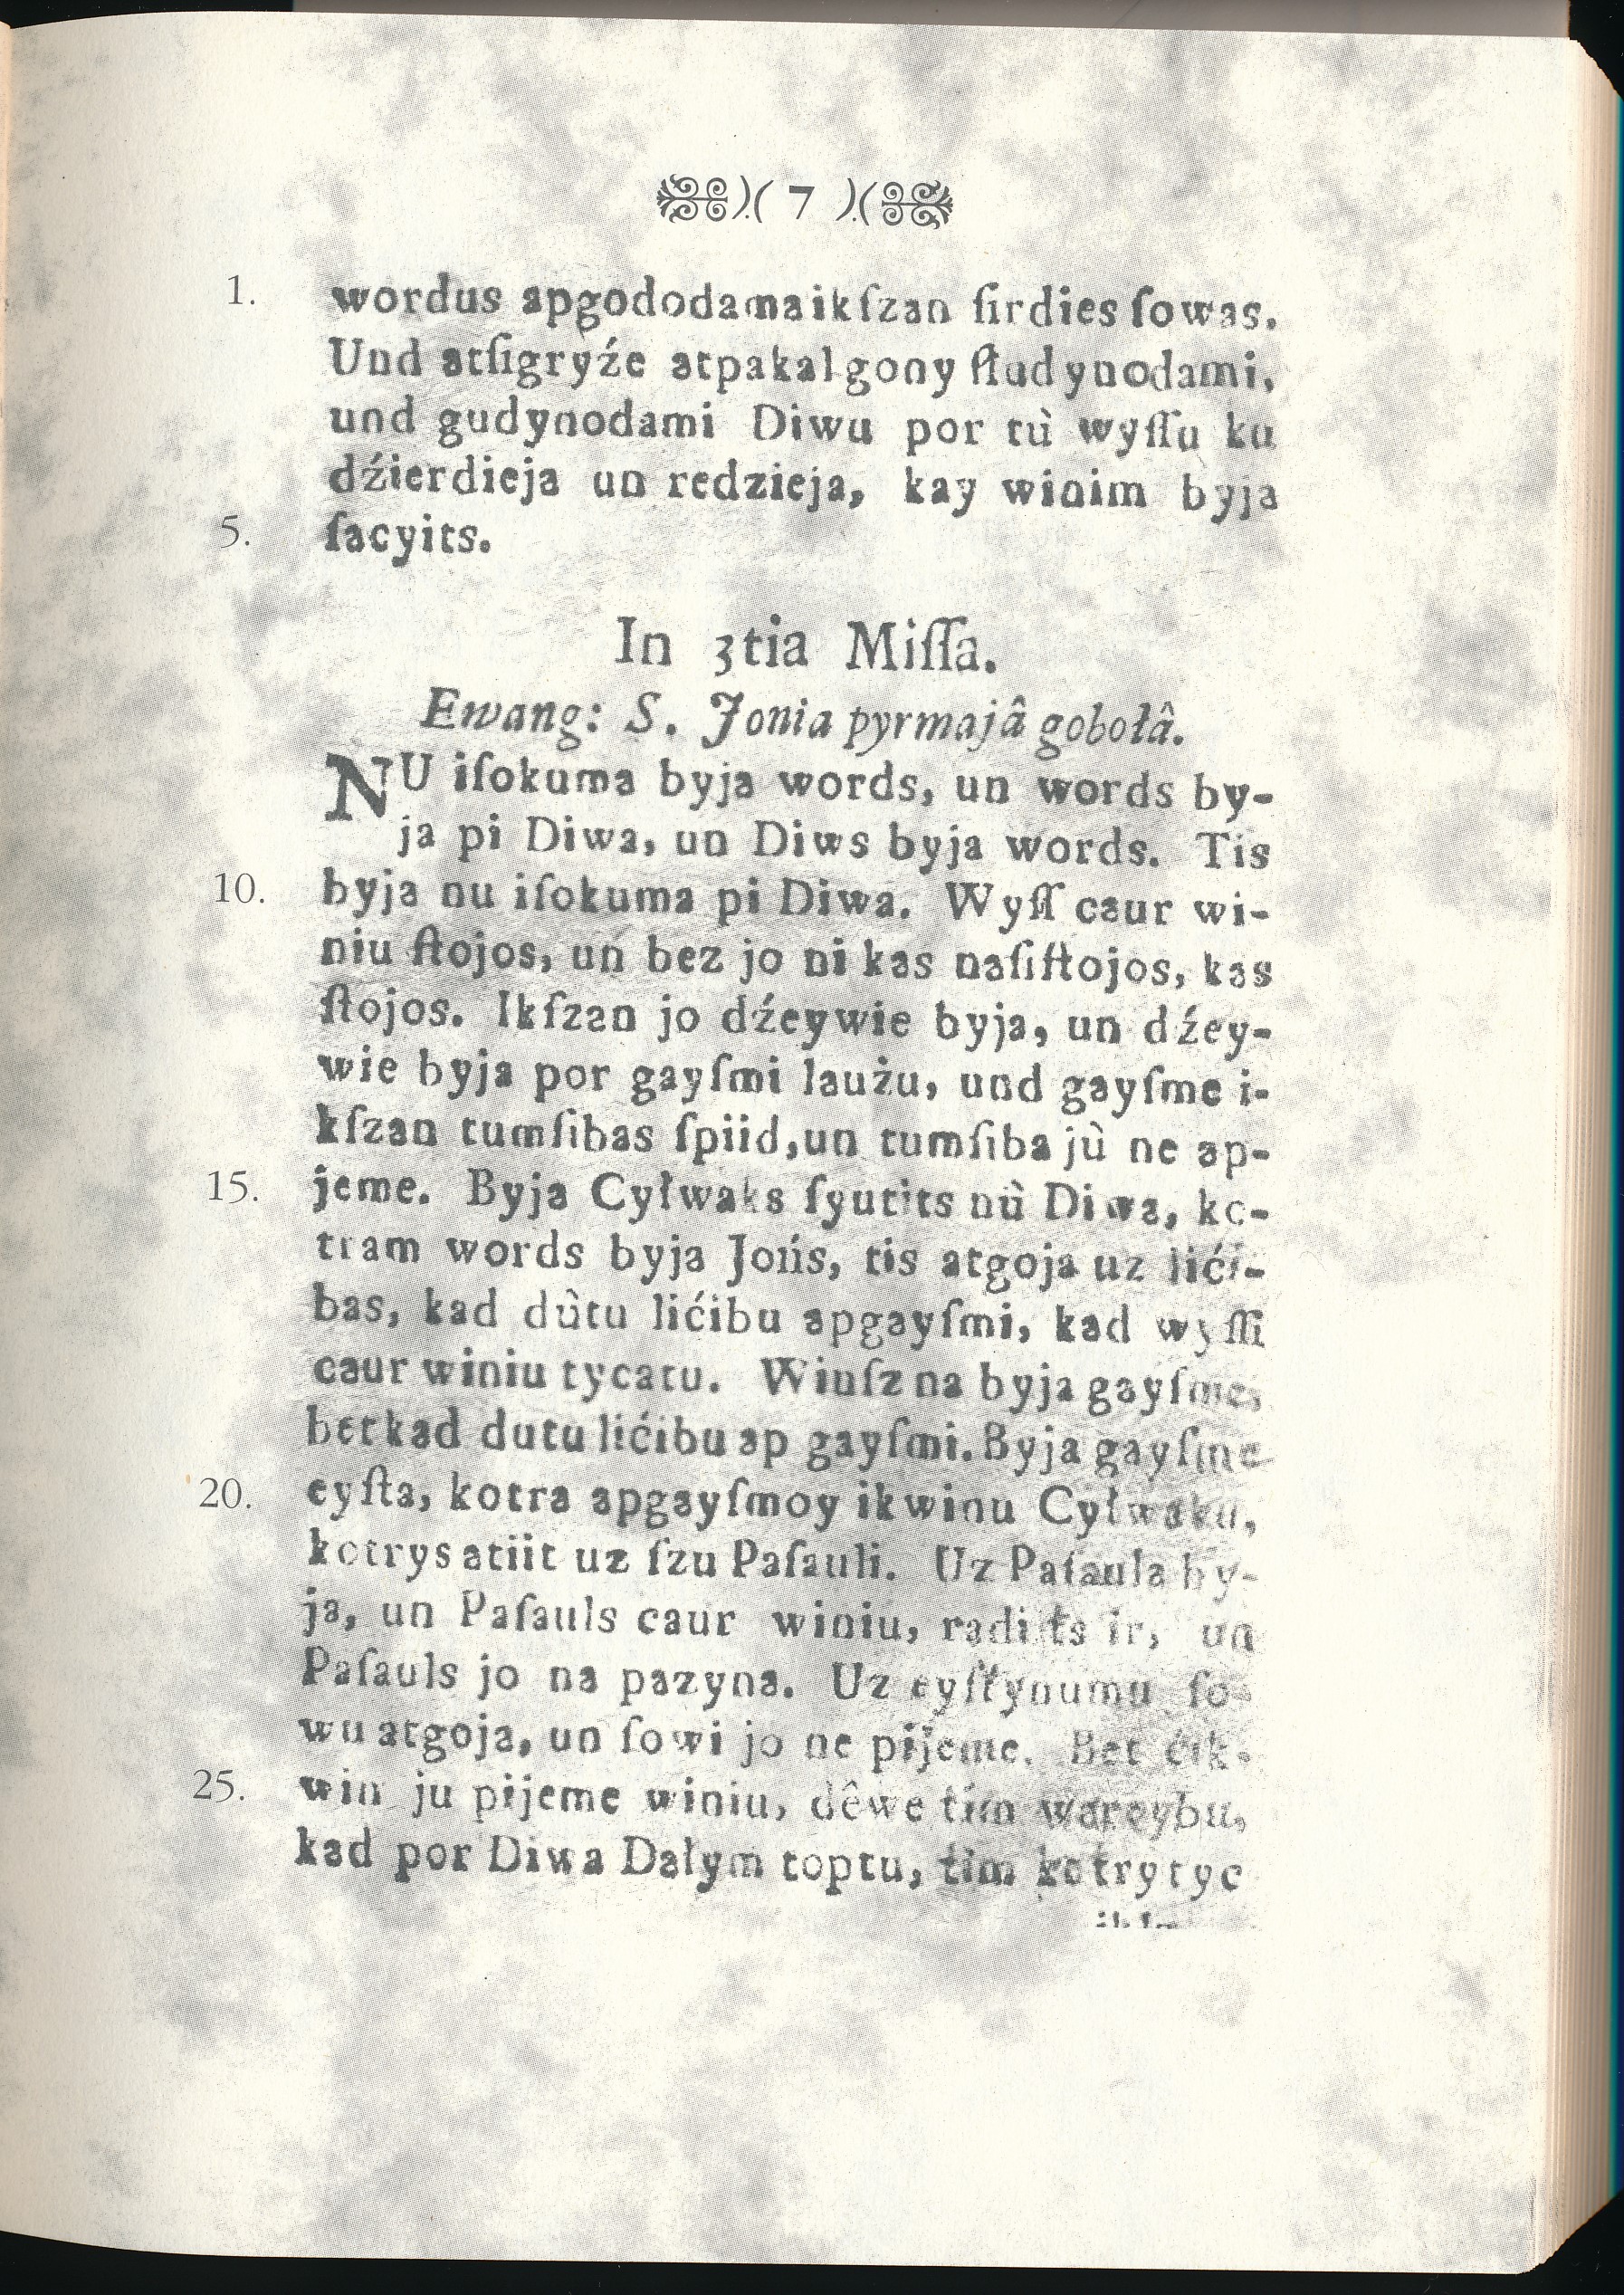 )( 7 )(
1. wordus apgododamaikſzan ſirdies ſowas.
Und atſigryźe atpakal gony ſludynodami,
und gudynodami Diwu por tù wyſſu ku
dźierdieja un redzieja, kay winim byja
5. ſacyits.
In 3tia Miſſa.
Ewang: S. Jonia pyrmajâ gobołâ.
NU iſokuma byja words, un words by-
ja pi Diwa, un Diws byja words. Tis
10. byja nu iſokuma pi Diwa. Wyſſ caur wi-
niu ſtojos, un bez jo ni kas naſiſtojos, kas
ſtojos. Ikſzan jo dźeywie byja, un dźey-
wie byja por gayſmi laużu, und gayſme i-
kſzan tumſibas ſpiid, un tumſiba jù ne ap-
15. jeme. Byja Cyłwaks ſyutits nù Diwa, ko-
tram words byja Jońs, tis atgoja uz lići-
bas, kad dùtu lićibu apgayſmi, kad wyſſi
caur winiu tycatu. Winſz na byja gayſme,
bet kad dutu lićibu ap gayſmi. Byja gayſme
20. eyſta, kotra apgayſmoy ikwinu Cyłwaku,
kotrys atiit uz ſzu Paſauli. Uz Paſaula by-
ja, un Paſauls caur winiu, radiits ir, un
Paſauls jo na pazyna. Uz eyſtynumu ſo-
wu atgoja, un ſowi jo ne pijeme. Bet ćik-
25. win ju pijeme winiu, dêwe tim wareybu,
kad por Diwa Dałym toptu, tim kotry tyc